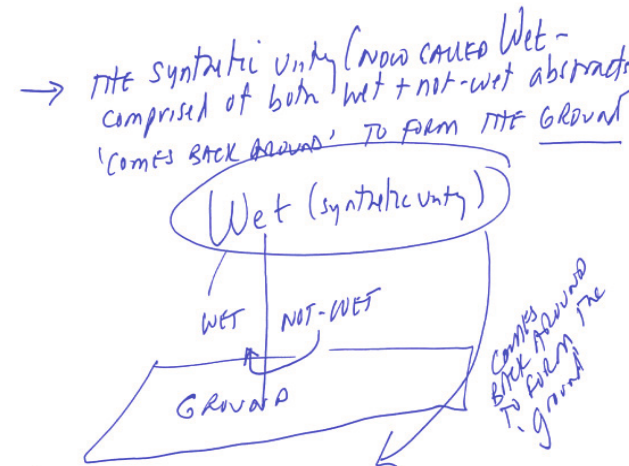 → THE synthetic unity (NOW CALLED Wet -
comprised of both wet + not-wet abstracts
'COMES BACK AROUND' TO FORM THE GROUND
Wet (synthetic unity)
WET NOT-WET
GROUND
COMES
BACK AROUND
TO FORM THE
ground